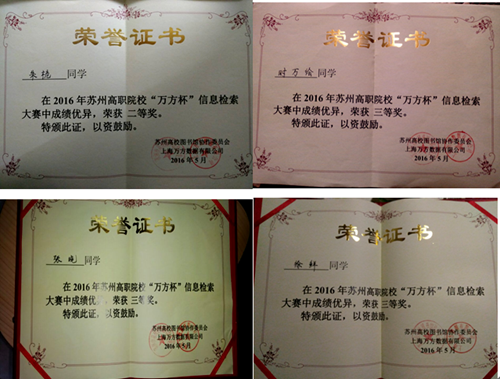 荣誉证书
同学
在2016年苏州高职院校“万方杯”信息检索
大赛中成绩优异，荣获 二等奖。
特颁此证，以资鼓励。
苏州高校图书馆协作委员会
上海万方数据有限公司
2016年5月
荣誉证书
时万绘 同学
在2016年苏州高职院校“万方杯”信息检索
大赛中成绩优异，荣获 三等奖。
特颁此证，以资鼓励。
苏州高校图书馆协作委员会
上海万方数据有限公司
2016年5月
荣誉证书
张 同学
在2016年苏州高职院校“万方杯”信息检索
大赛中成绩优异，荣获 三等奖。
特颁此证，以资鼓励。
苏州高校图书馆协作委员会
上海万方数据有限公司
2016年5月
荣誉证书
徐 同学
在2016年苏州高职院校“万方杯”信息检索
大赛中成绩优异，荣获 三等奖。
特颁此证，以资鼓励。
苏州高校图书馆协作委员会
上海万方数据有限公司
2016年5月